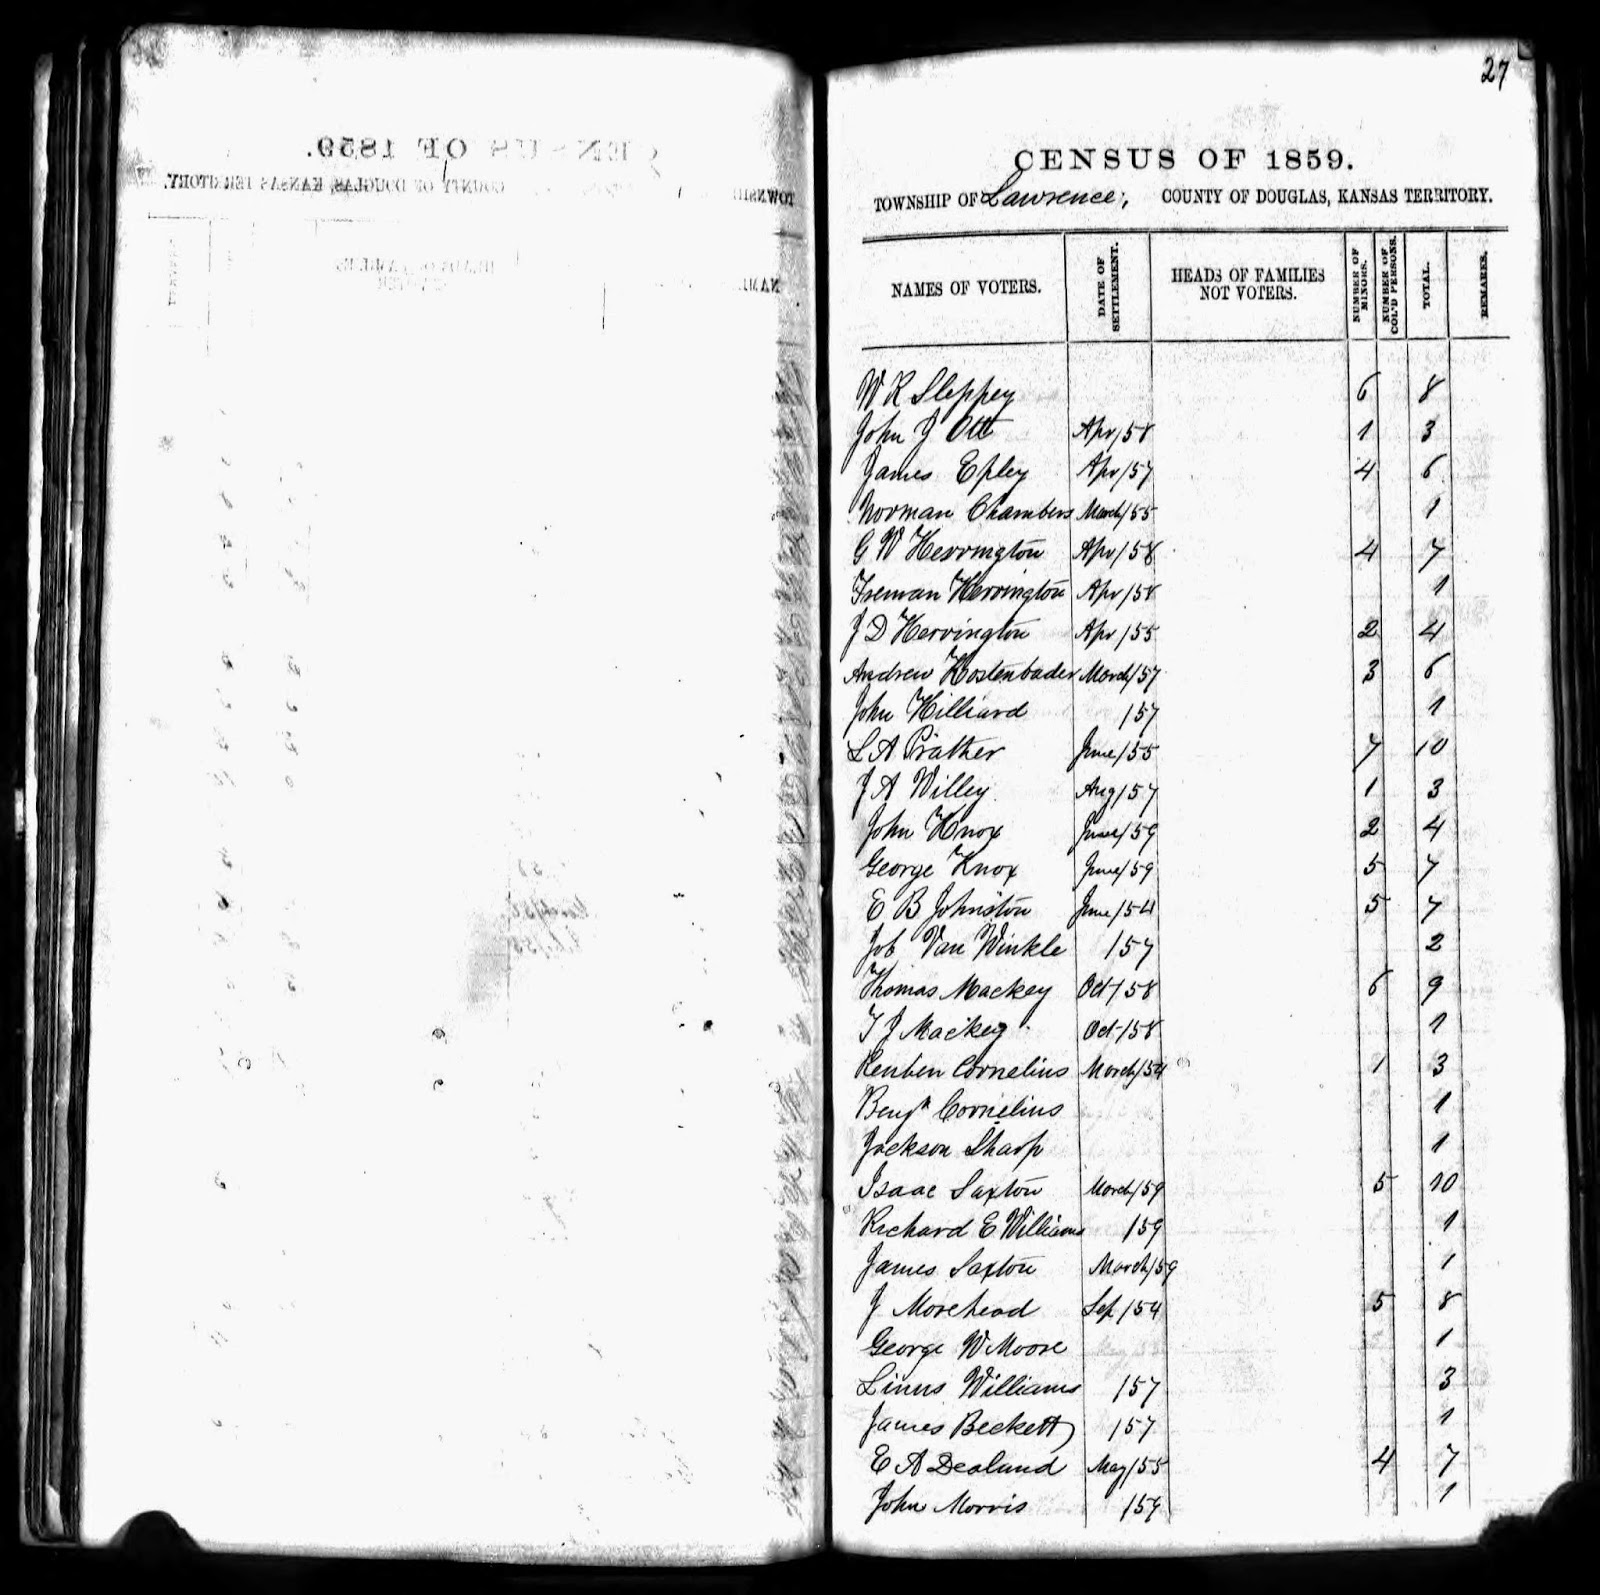 27
CENSUS OF 1859.
TOWNSHIP OF Lawrence, COUNTY OF DOUGLAS, KANSAS TERRITORY.
NAMES OF VOTERS. DATE OF SETTLEMENT. HEADS OF FAMILIES NOT VOTERS. NUMBER OF MINORS. NUMBER OF COL'D PERSONS. TOTAL. REMARKS.
W R Sleppey 6 8
John J Ott Apr/58 1 3
James Epley Apr/57 4 6
Norman Chambers March/55 1
G W Herrington Apr/58 4 7
Freman Herrington Apr/58 1
J D Herrington Apr/55 2 4
Andrew Hostenbader March/57 3 6
John Hilliard /57 1
L A Prather June/55 7 10
J A Willey Aug/57 1 3
John Knox June/59 2 4
George Knox June/59 5 7
E B Johnston June/54 5 7
Job Van Winkle /57 2
Thomas Mackey Oct/58 6 9
T J Mackey Oct/58 1
Reuben Cornelius March/54 1 3
Benjn Cornelius 1
Jackson Sharp 1
Isaac Saxton March/59 5 10
Richard E Williams /59 1
James Saxton March/59 1
J Morehead Sep/54 5 8
George W Moore 1
Linus Williams /57 3
James Beckett /57 1
E A Dealand May/55 4 7
John Morris /59 1
CENSUS OF 1859.
COUNTY OF DOUGLAS, KANSAS TERRITORY.